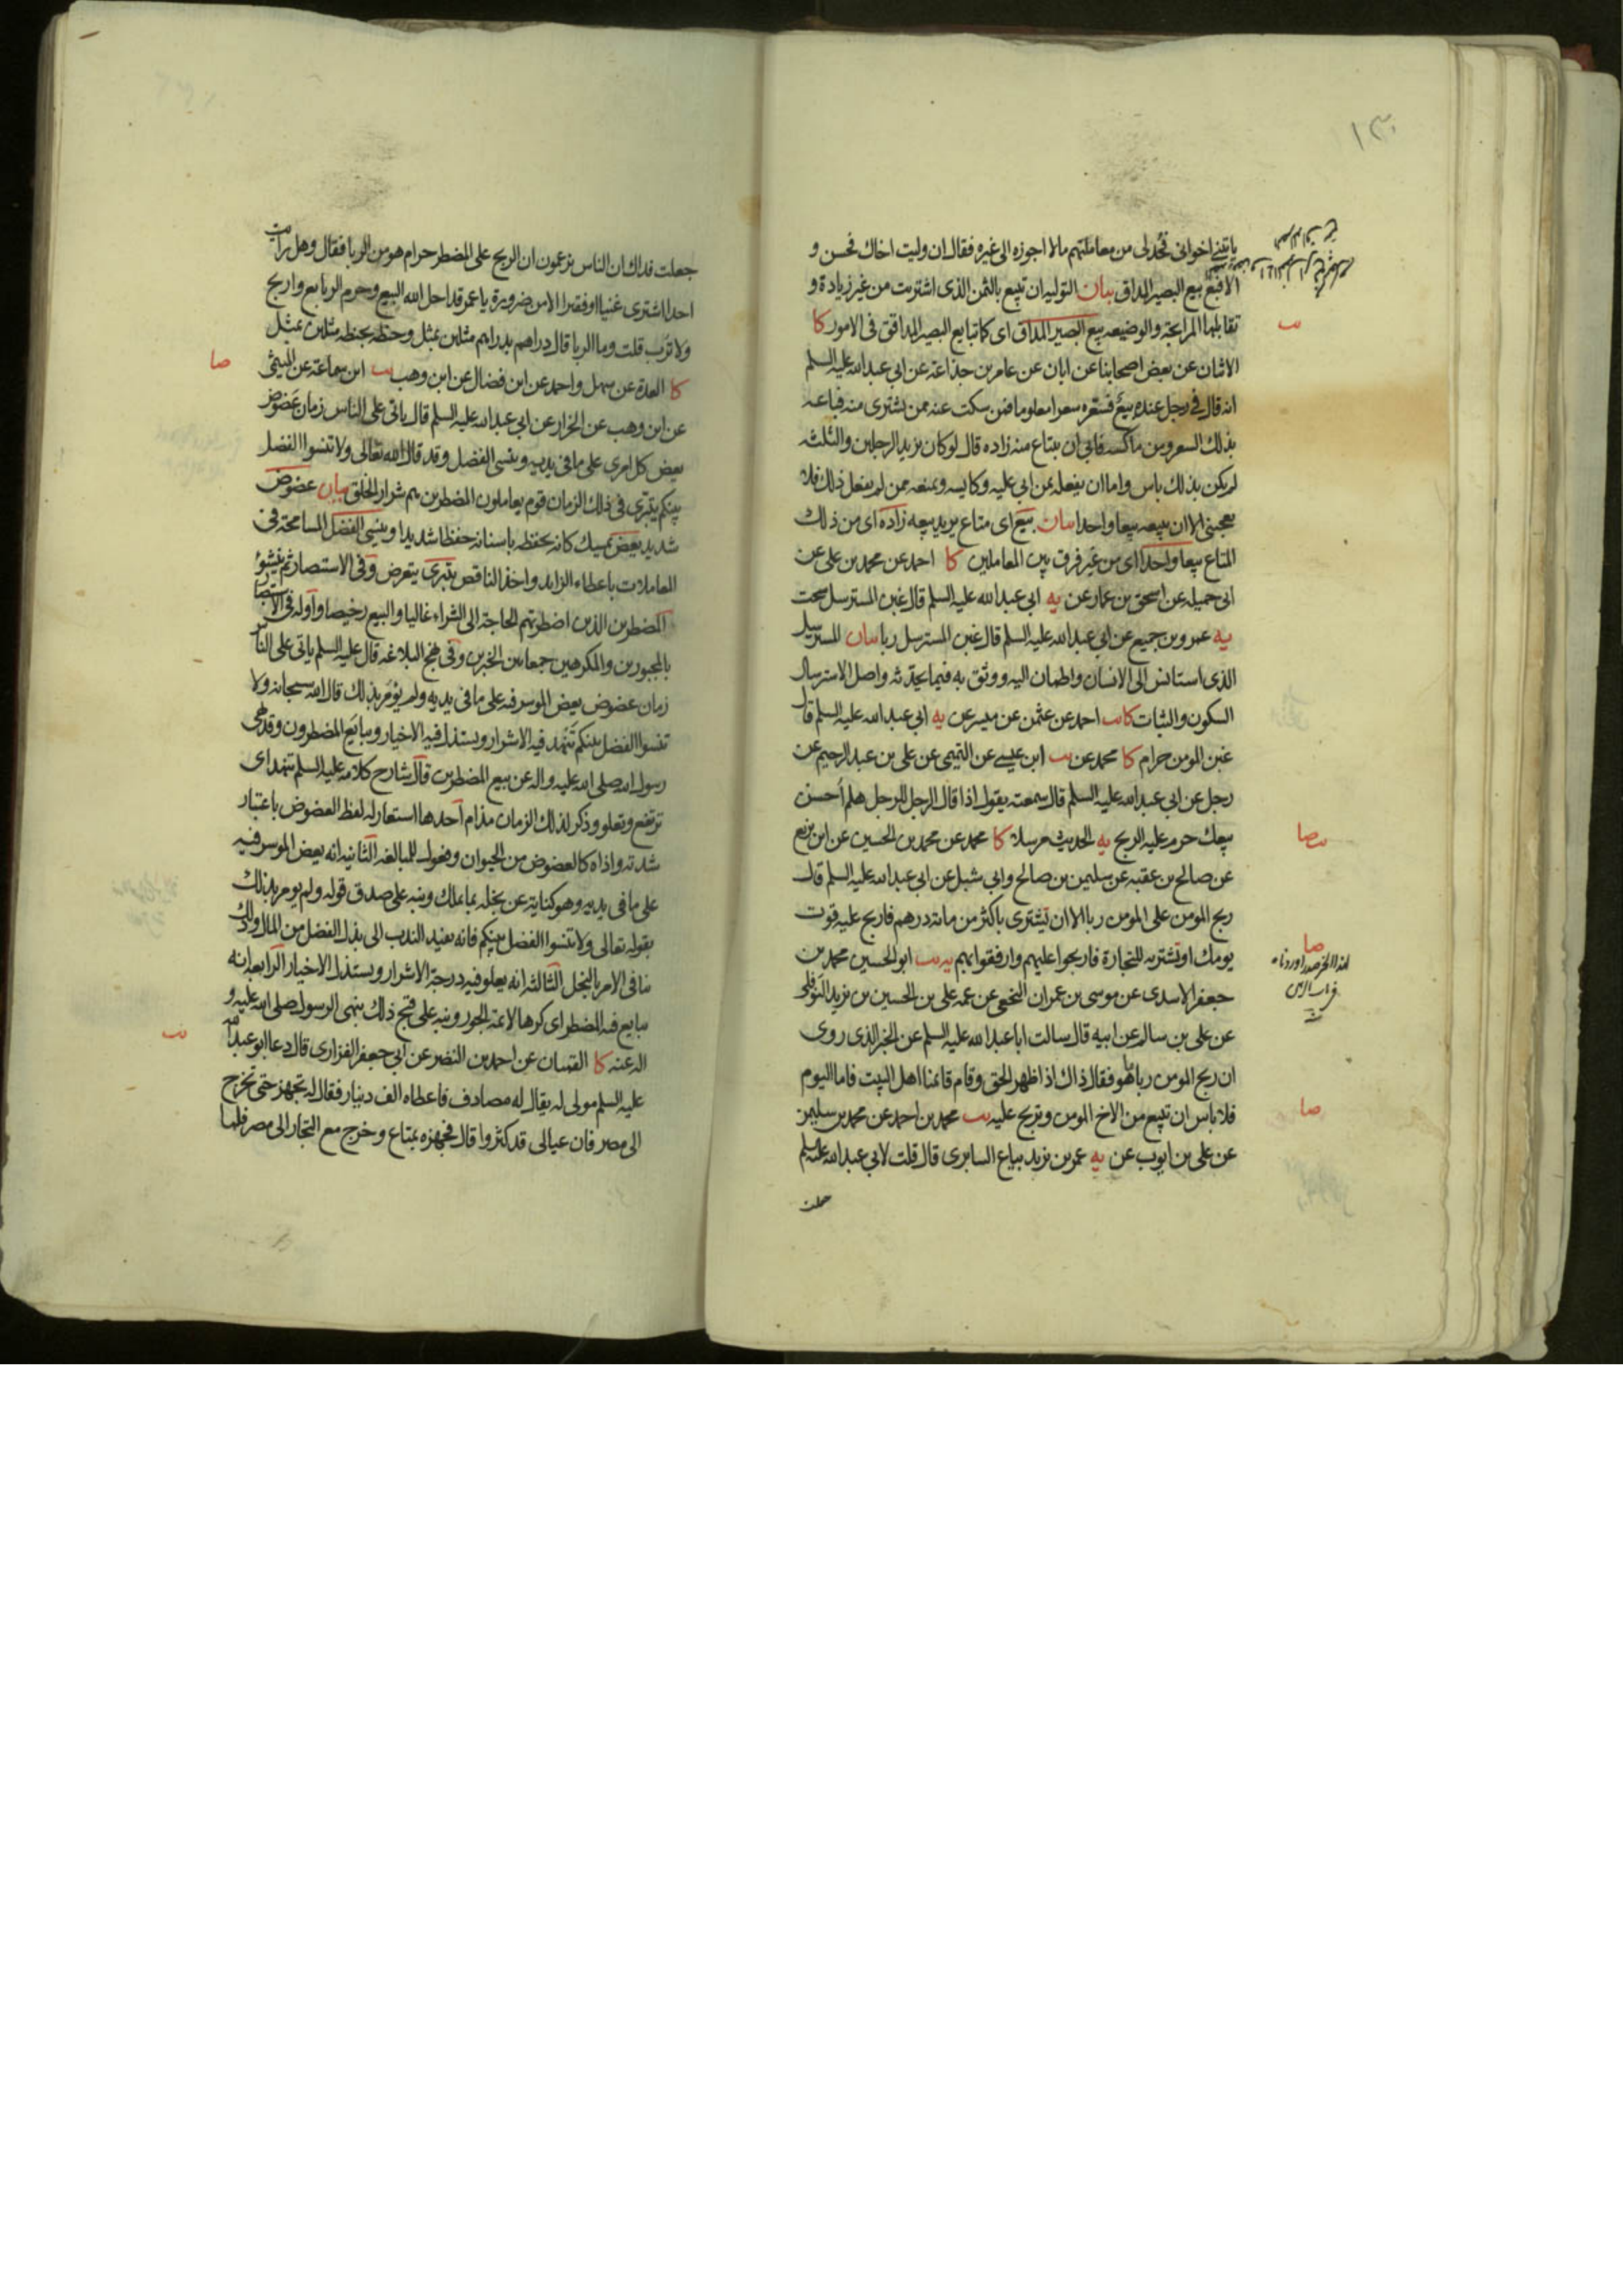 ١٣٠
ياتينى اخوانى فحد لى من معاملتهم ما لا اجوزه الى غيره فقال ان وليت اخاك فحسن و
الا فبع بيع البصير المداق بيان التوليه ان تبيع بالثمن الذى اشتريت من غير زيادة و
تقابلها المرابحة والوضيعه بيع البصير المداق اى كما تبايع البصير المداقق فى الامور كا
الاثنان عن بعض اصحابنا عن ابان عن عامر بن جذاعة عن ابى عبد الله عليه السلم
انه قال فى رجل عنده بيع فسعره سعرا معلوما فمن سكت عنه ممن يشترى منه فباعه
بذلك السعر ومن ماكسه فابى ان يبتاع منه زاده قال لو كان يزيد الرجلين والثلثه
لم يكن بذلك باس واما ان يفعله بمن ابى عليه وكايسه ويمنعه ممن لم يفعل ذلك فلا
يعجبنى الا ان يبيعه بيعا واحدا بيان بيع اى متاع يريد بيعه زاده اى من ذلك
المتاع بيعا واحدا اى من غير فرق بين المعاملين كا احمد عن محمد بن على عن
ابى جميله عن اسحق بن عمار عن يه ابى عبد الله عليه السلم قال غبن المسترسل سحت
يه عمرو بن جميع عن ابى عبد الله عليه السلم قال غبن المسترسل ربا بيان المسترسل
الذى استانس الى الانسان واطمان اليه ووثق به فيما يحدثه واصل الاسترسال
السكون والثبات كا يب احمد عن عثمن عن ميسر عن يه ابى عبد الله عليه السلم قال
غبن المومن حرام كا محمد عن يب ابن عيسى عن التميمى عن على بن عبد الرحيم عن
رجل عن ابى عبد الله عليه السلم قال سمعته يقول اذا قال الرجل للرجل هلم أحسن
بيعك حرم عليه الربح يه الحديث مرسلا كا محمد عن محمد بن الحسين عن ابن بزيع
عن صالح بن عقبه عن سليمن بن صالح وابى شبل عن ابى عبد الله عليه السلم قال
ربح المومن على المومن ربا الا ان يشترى باكثر من مائة درهم فاربح عليه قوت
يومك او يشتريه للتجارة فاربحوا عليهم وارفقوا بهم يه يب ابو الحسين محمد بن
جعفر الاسدى عن موسى بن عمران النخعى عن عمه على بن الحسين بن يزيد النوفلى
عن على بن سالم عن ابيه قال سالت ابا عبد الله عليه السلم عن الخبر الذى روى
ان ربح المومن ربا ما هو فقال ذاك اذا ظهر الحق وقام قائمنا اهل البيت فاما اليوم
فلا باس ان تبيع من الاخ المومن وتربح عليه يب محمد بن احمد عن محمد بن سليمن
عن على بن ايوب عن يه عمر بن يزيد بياع السابرى قال قلت لابى عبد الله عليه السلم
جعلت
يب
صا
صا
جعلت فداك ان الناس يزعمون ان الربح على المضطر حرام هو من الربا فقال وهل رايت
احدا اشترى غنيا او فقيرا الا من ضرورة يا عمر قد احل الله البيع وحرم الربا بع واربح
ولا ترب قلت وما الربا قال دراهم بدراهم مثلين بمثل وحنطة بحنطة مثلين بمثل
كا العدة عن سهل واحمد عن ابن فضال عن ابن وهب يب ابن سماعة عن الميثمى
عن ابن وهب عن الخراز عن ابى عبد الله عليه السلم قال ياتى على الناس زمان عضوض
يعض كل امرى على ما فى يديه وينسى الفضل وقد قال الله تعالى ولا تنسوا الفضل
بينكم يتبرى فى ذلك الزمان قوم يعاملون المضطرين هم شرار الخلق بيان عضوض
شديد يعض يمسك كانه يحفظه باسنانه حفظا شديدا وينسى الفضل المسامحة فى
المعاملات باعطاء الزايد واخذ الناقص يتبرى يتعرض وفى الاستبصار ثم ينشؤ
المضطرين الذين اضطرتهم الحاجة الى الشراء غاليا والبيع رخيصا واوله فى الاستبصار
بالمجبورين والمكرهين جمعا بين الخبرين وفى نهج البلاغه قال عليه السلم ياتى على الناس
زمان عضوض يعض الموسر فيه على ما فى يديه ولم يؤمر بذلك قال الله سبحانه ولا
تنسوا الفضل بينكم تنهد فيه الاشرار ويستذل فيه الاخيار ويبايع المضطرون وقد نهى
رسول الله صلى الله عليه واله عن بيع المضطرين قال شارح كلامه عليه السلم تنهد اى
ترتفع وتعلو وذكر لذلك الزمان مذام احدها استعار له لفظ العضوض باعتبار
شدته واذاه كالعضوض من الحيوان وفعول للمبالغة الثانيه انه يعض الموسر فيه
على ما فى يديه وهو كناية عن بخله بما يملك ونبه على صدق قوله ولم يومر بذلك
بقوله تعالى ولا تنسوا الفضل بينكم فانه يفيد الندب الى بذل الفضل من المال وذلك
ينافى الامر بالبخل الثالثه انه يعلو فيه درجة الاشرار ويستذل الاخيار الرابعه انه
يبايع فيه المضطر اى كرها لائمة الجور ونبه على قبح ذلك بنهى الرسول صلى الله عليه و
اله عنه كا القميان عن احمد بن النضر عن ابى جعفر الفزارى قال دعا ابو عبد الله
عليه السلم مولى له يقال له مصادف فاعطاه الف دينار فقال له تجهز حتى تخرج
الى مصر فان عيالى قد كثروا قال فجهزه بمتاع وخرج مع التجار الى مصر فلما
صا
يب